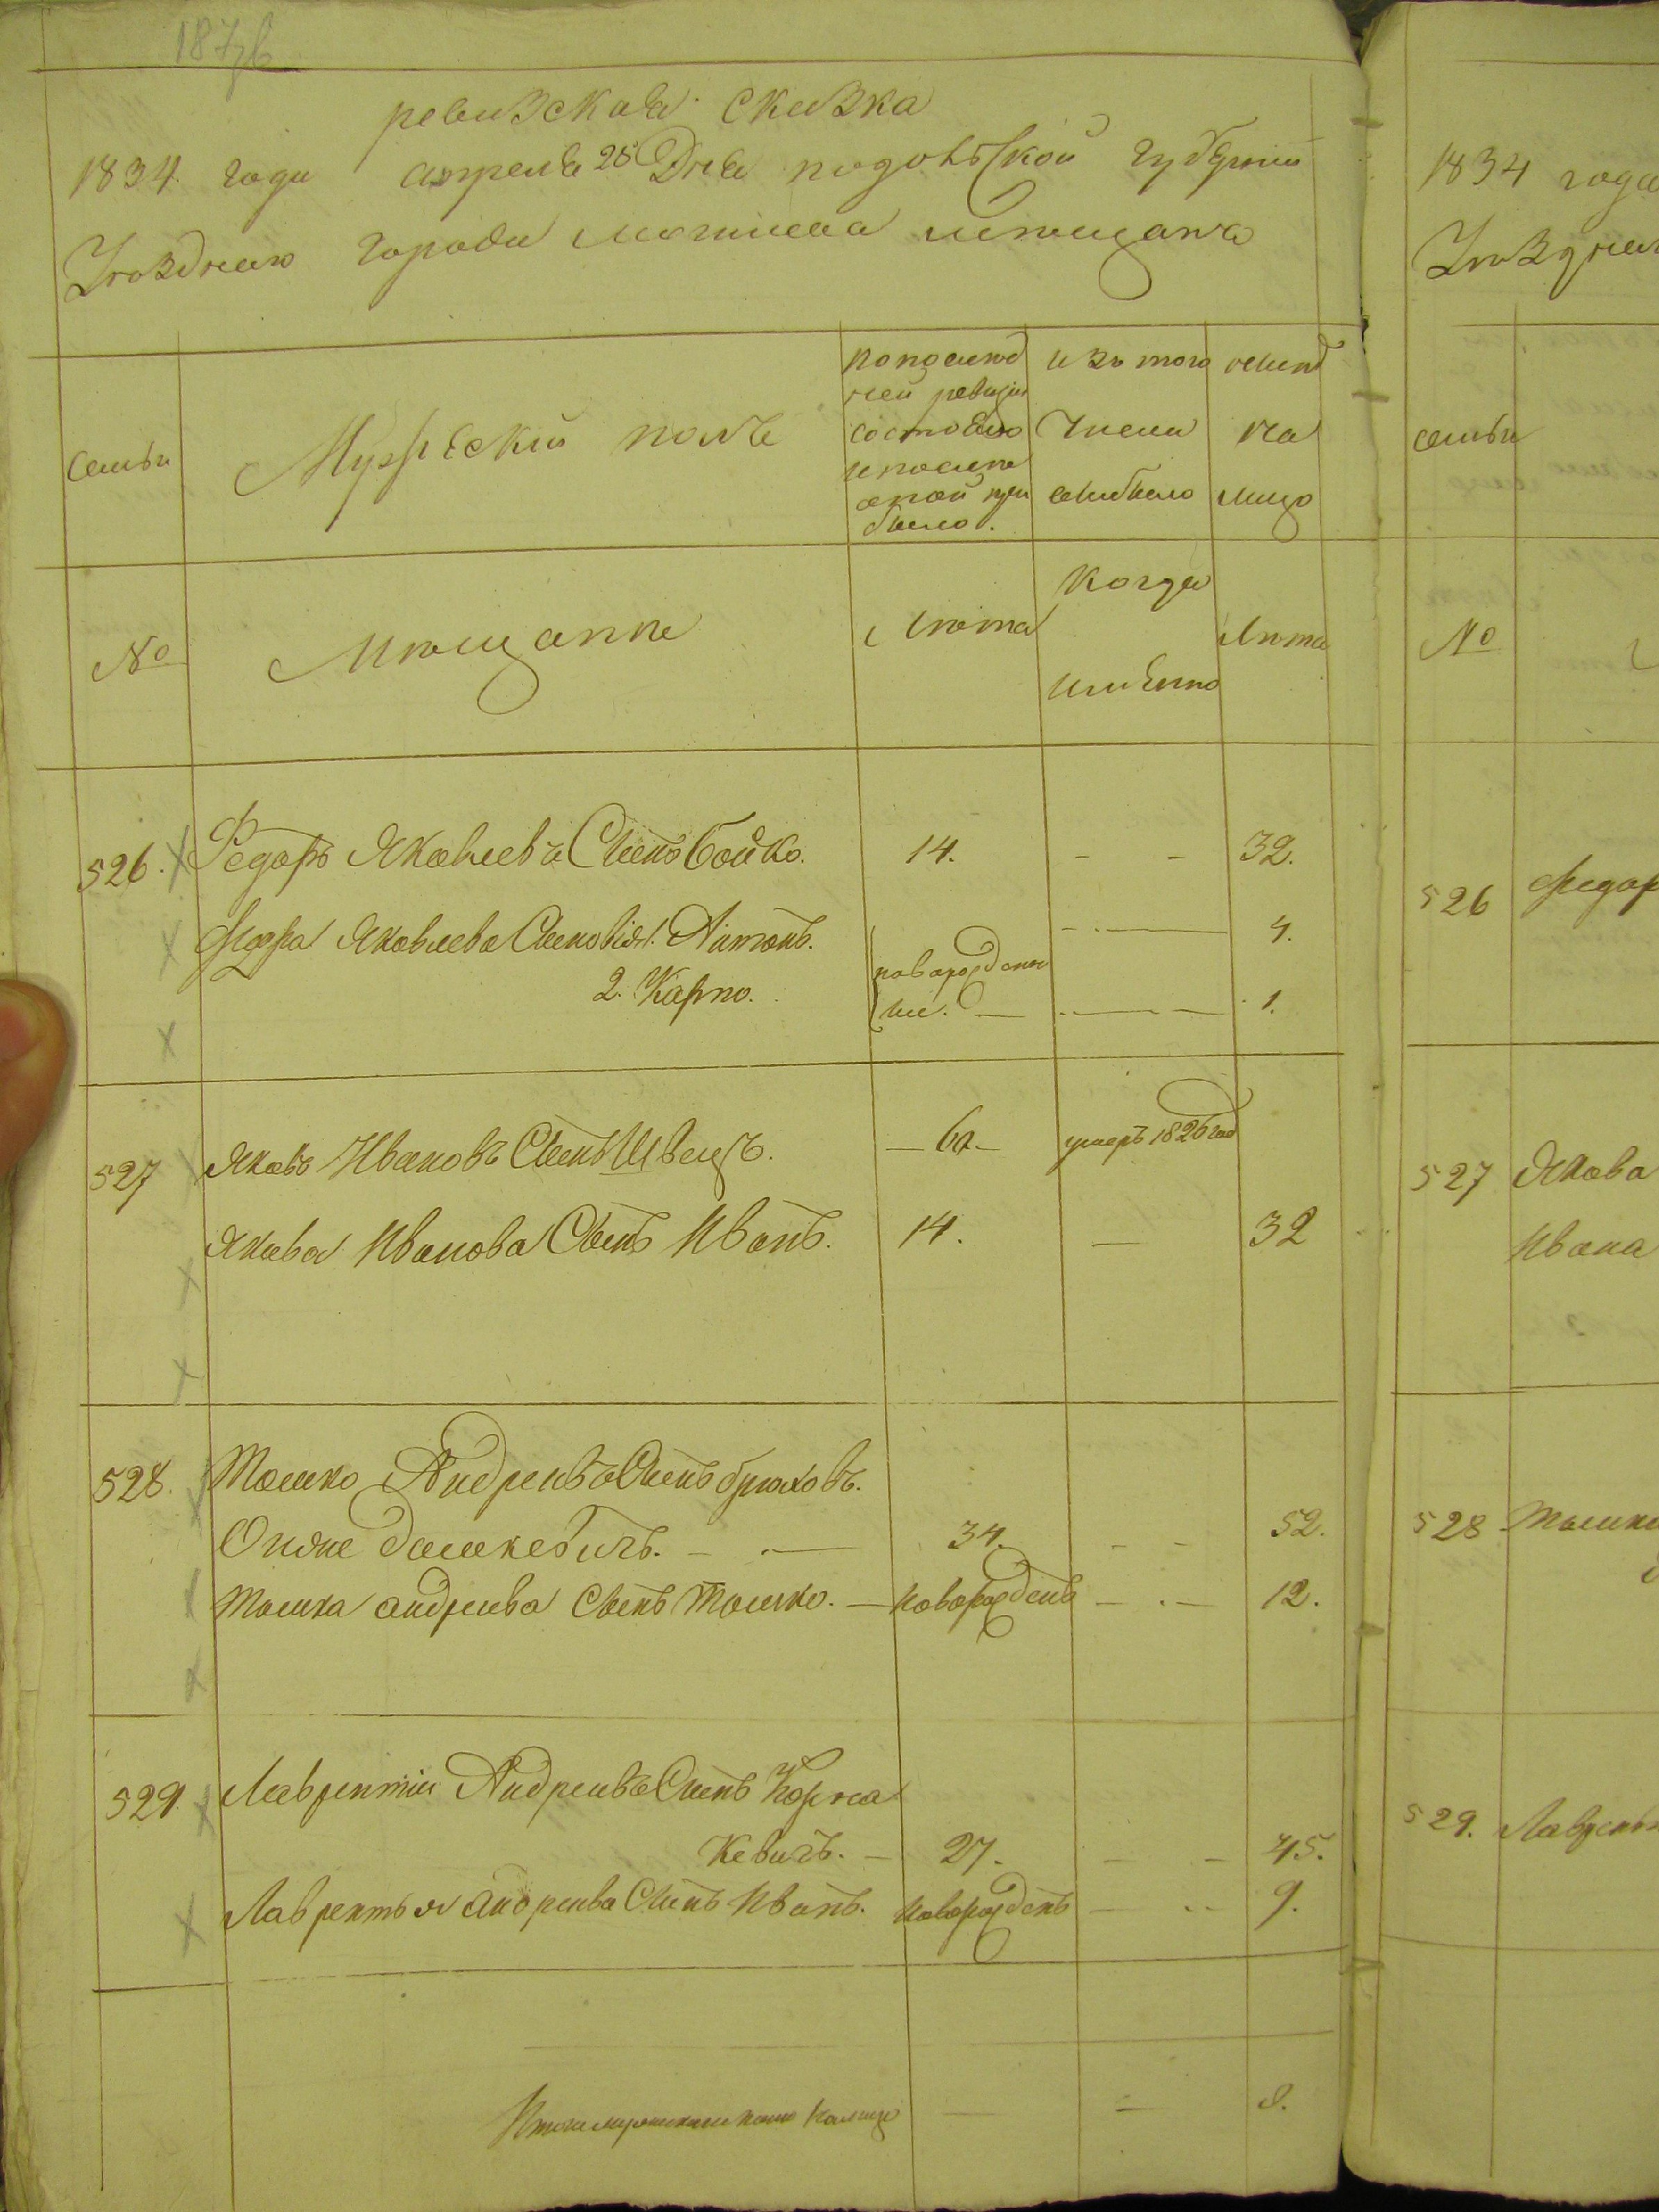 ревизская сказка
1834 года апреля 25 Дня подольской губернии
Уездного города могилева мещанъ
семьи
Мужеский полъ
по послед
ней ревизии
состояло
и после
оной при
было.
изъ того
числа
выбыло
ныне
на
лицо
№
Мещане
Лета
когда
именно
Лета
526. Федоръ Яковлевъ Сынъ Бойко. 14. - - 32.
Федора Яковлева Сыновья 1. Антонъ. 4.
2. Карпо. новорожденны
ые. 1.
527 Яковъ Ивановъ Сынъ Швецъ. - 60 - умеръ 1826 год
Якова Иванова Сынъ Иванъ. 14. - 32
528. Томко Андреевъ Сынъ брюховъ.
Онже далекевичъ. - - 34. - - 52.
Томка андреева Сынъ Томко. - новорожденъ - . - 12.
529 Лаврентий Андреевъ Сынъ Корна
кевичъ. - 27. - - 45.
Лаврентья Андреева Сынъ Иванъ. новорожденъ - .. 9.
Итого мужеска пола налицо - - 8.
1834 года
Уездна
семьи
№
526 Федор
527 Якова
Ивана
528 Томк
529. Лаврент